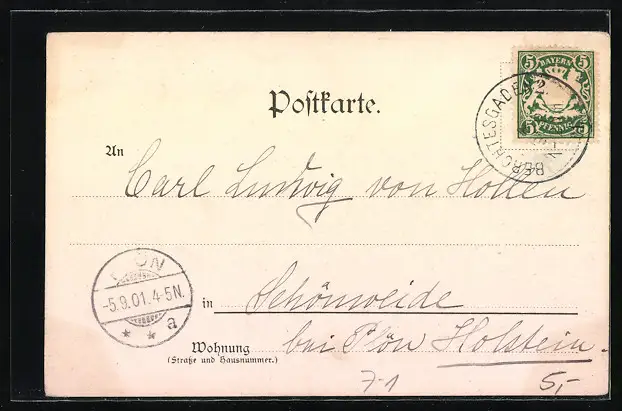 5 BAYERN 5
5 PFENNIG 5
BERCHTESGADEN
Postkarte.
An
Carl Ludwig von Hollen
PLÖN
-5.9.01.4-5N.
* * a
in Schönweide
Wohnung
(Straße und Hausnummer.)
bei Plön Holstein.
71
5,-